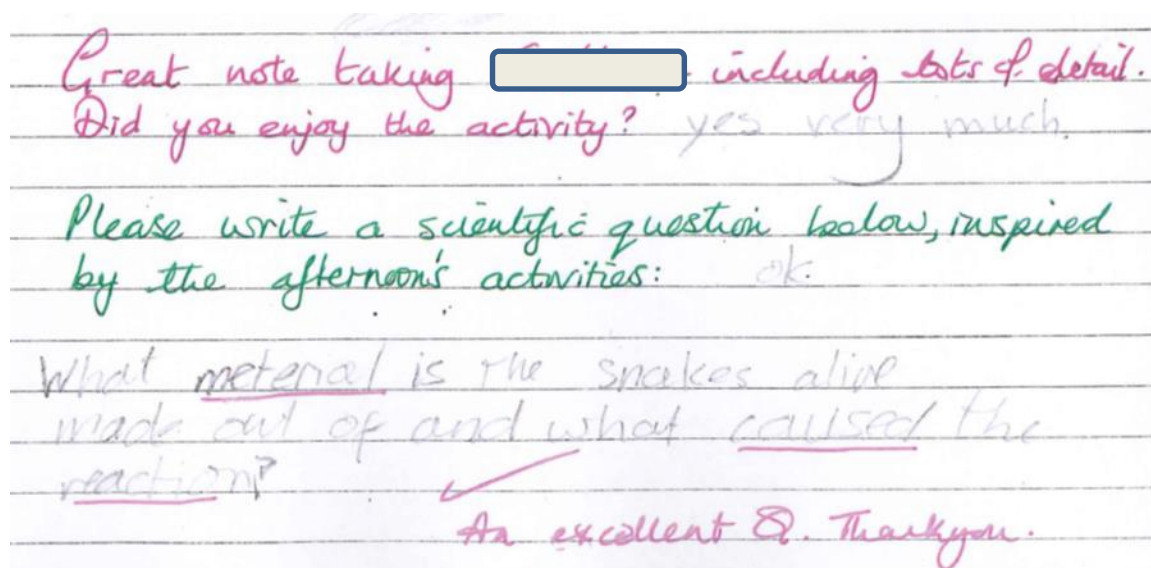 Great note taking including lots of detail.
Did you enjoy the activity? yes very much.
Please write a scientific question below, inspired
by the afternoon's activities: ok.
What meterial is the snakes alive
made out of and what caused the
reaction?
An excellent Q. Thankyou.